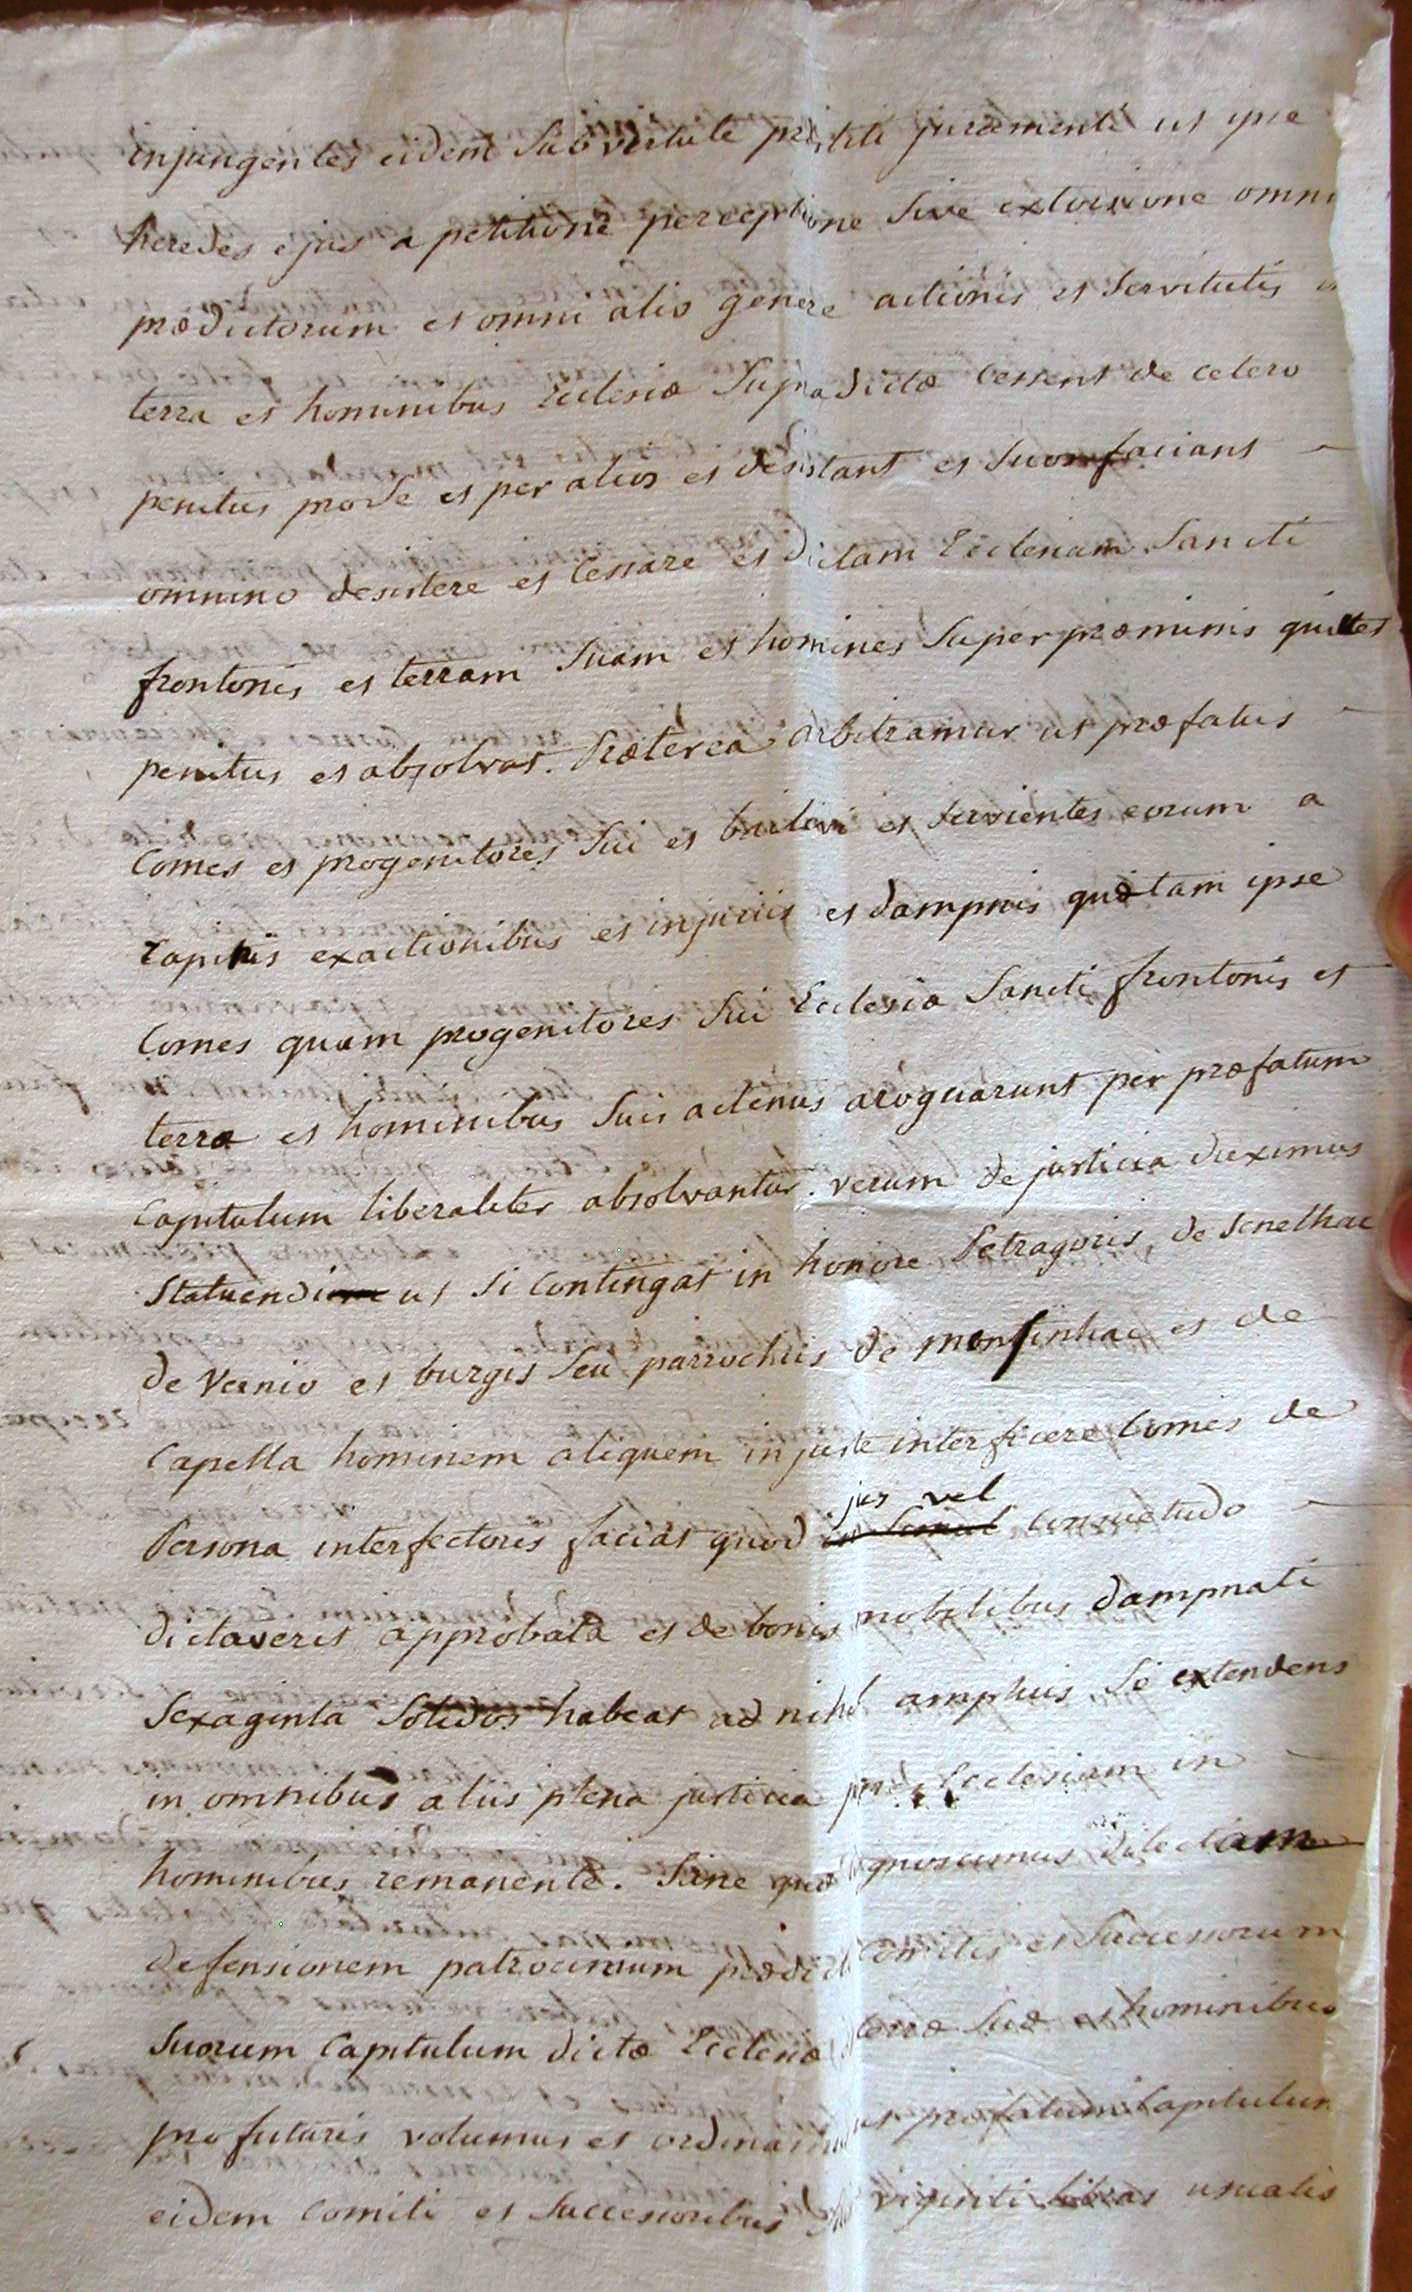 injungentes eidem sub virtute prestiti juramenti ut ipse
heredes ejus a petitione perceptione sive extorsione omni
prædictorum et omni alio genere actionis et servitutis
terra et hominibus Ecclesiæ supradictæ cessent de cetero
penitus pro se et per alios et desistant et suos faciant
omnino desistere et cessare et dictam Ecclesiam Sancti
frontonis et terram suam et homines super præmissis quittet
penitus et absolvat. Præterea arbitramur ut præfatus
Comes et progenitores sui et bailivi et servientes eorum a
rapinis exactionibus et injuriis et dampnis quæ tam ipse
Comes quam progenitores sui Ecclesiæ Sancti frontonis et
terræ et hominibus suis actenus aroguarunt per præfatum
Capitulum liberaliter absolvantur. verum de justicia duximus
statuendum ut si contingat in honore Petragoris, de senelhac
de Vernio et burgis seu parrochiis de monsinhac et de
Capella hominem aliquem injuste interficere Comes de
Persona interfectoris faciat quod jus vel consuetudo
dictaverit approbata et de bonis mobilibus dampnati
sexaginta solidos habeat ad nihil amplius se extendens
in omnibus aliis plena justicia Ecclesiam in
hominibus remanente. Sane quia
defensionem patrocinium prædicti Comitis et successorum
suorum Capitulum dictæ Ecclesiæ terræ suæ et hominibus
profuturis volumus et ordinamus ut præfatum Capitulum
eidem Comiti et successoribus viginti libras usualis